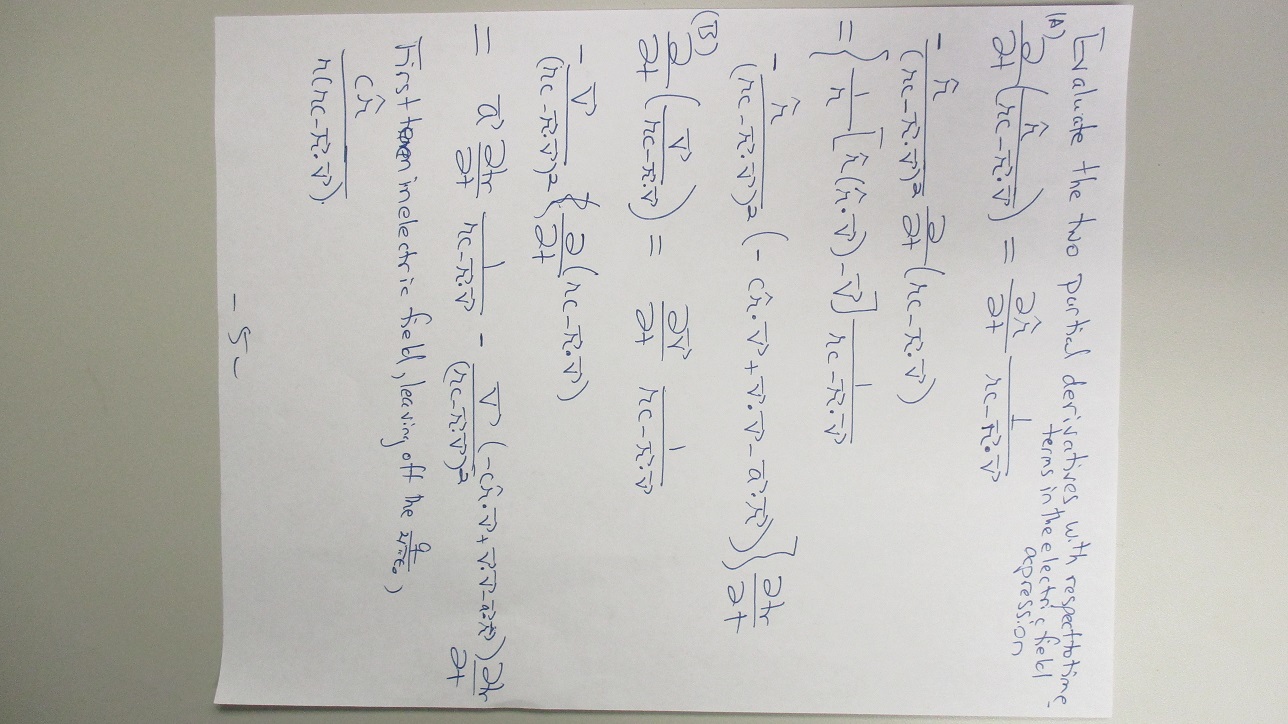 Evaluate the two partial derivatives, with respect to time
terms in the electric field
expression
(A) ∂/∂t ( r̂ / (rc - r⃗·v⃗) ) = ∂r̂/∂t 1/(rc - r⃗·v⃗)
- r̂/(rc - r⃗·v⃗)² ∂/∂t (rc - r⃗·v⃗)
= { 1/r [ r̂(r̂·v⃗) - v⃗ ] 1/(rc - r⃗·v⃗)
- r̂/(rc - r⃗·v⃗)² ( - cr̂·v⃗ + v⃗·v⃗ - a⃗·r⃗ ) } ∂tr/∂t
(B) ∂/∂t ( v⃗ / (rc - r⃗·v⃗) ) = ∂v⃗/∂t 1/(rc - r⃗·v⃗)
- v⃗/(rc - r⃗·v⃗)² { ∂/∂t (rc - r⃗·v⃗)
= a⃗ ∂tr/∂t 1/(rc - r⃗·v⃗) - v⃗/(rc - r⃗·v⃗)² ( -cr̂·v⃗ + v⃗·v⃗ - a⃗·r⃗ ) ∂tr/∂t
First term in electric field, leaving off the
cr̂ / r(rc - r⃗·v⃗).
- 5 -